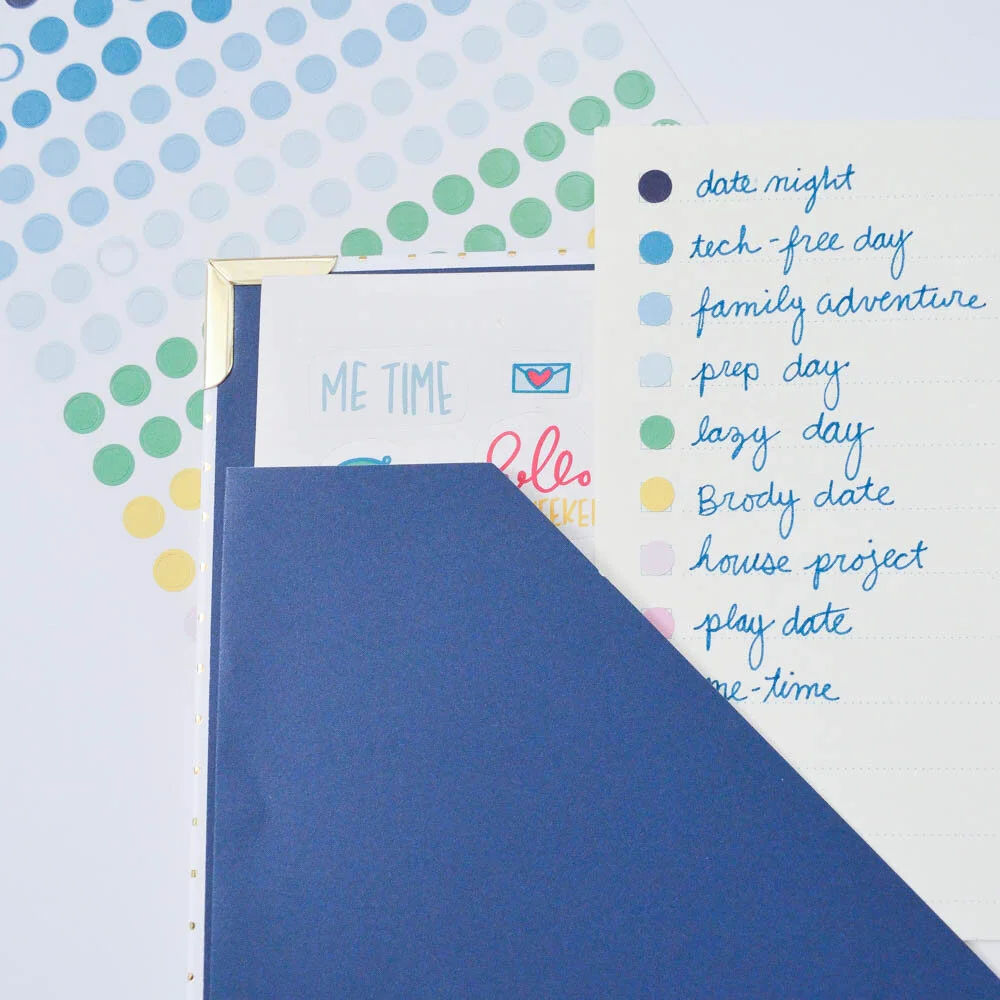 date night
tech-free day
family adventure
prep day
lazy day
Brody date
house project
play date
me-time
ME TIME